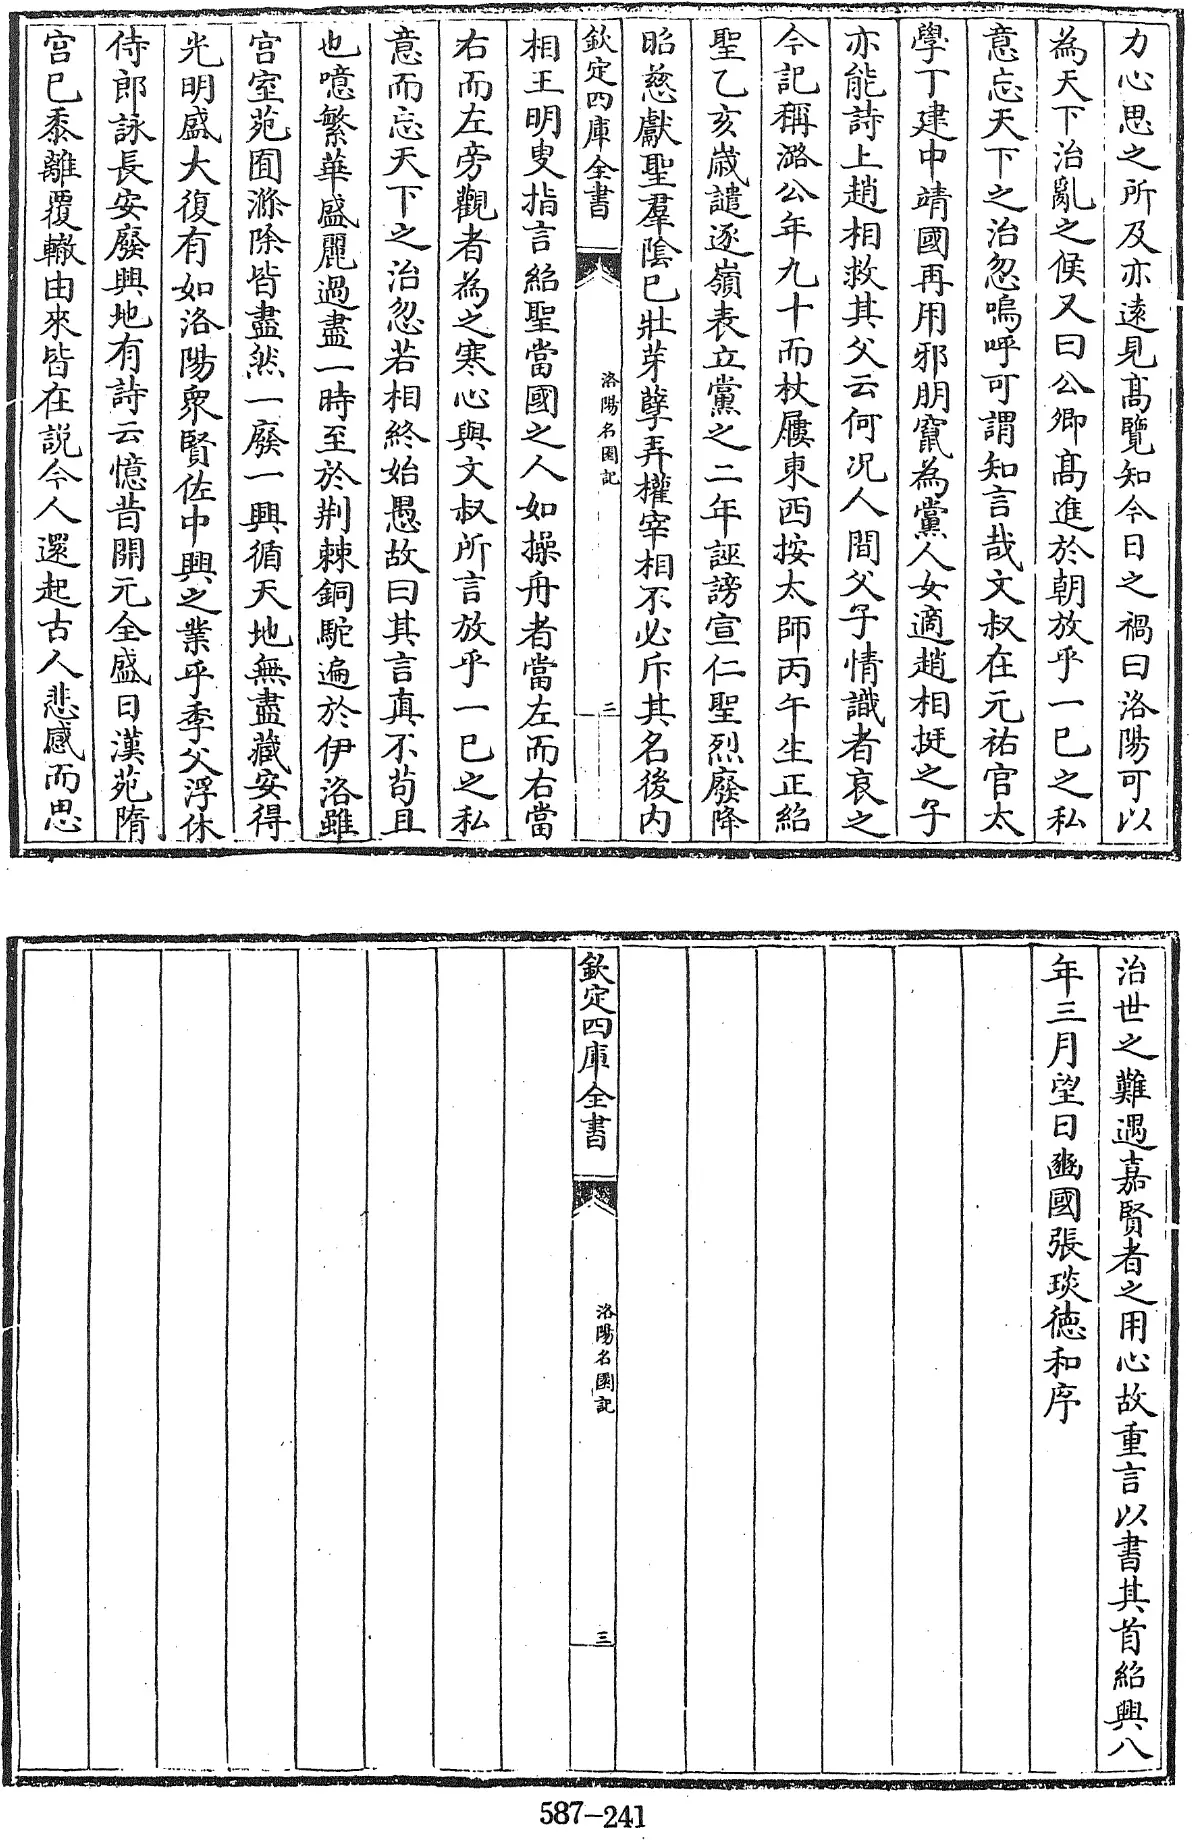 力心思之所及亦逺見髙覽知今日之禍曰洛陽可以
為天下治亂之候又曰公卿髙進於朝放乎一已之私
意忘天下之治忽嗚呼可謂知言哉文叔在元祐官太
學丁建中靖國再用邪朋竄為黨人女適趙相挺之子
亦能詩上趙相救其父云何况人間父子情識者哀之
今記稱潞公年九十而杖屨東西按太師丙午生正紹
聖乙亥嵗譴逐嶺表立黨之二年誣謗宣仁聖烈廢降
昭慈獻聖羣隂已壯芽孽弄權宰相不必斥其名後内
欽定四庫全書
洛陽名園記
二
相王明叟指言紹聖當國之人如操舟者當左而右當
右而左旁觀者為之寒心與文叔所言放乎一已之私
意而忘天下之治忽若相終始愚故曰其言真不苟且
也噫繁華盛麗過盡一時至於荆棘銅駝遍於伊洛雖
宫室苑囿滌除皆盡然一廢一興循天地無盡藏安得
光明盛大復有如洛陽衆賢佐中興之業乎季父浮休
侍郎詠長安廢興地有詩云憶昔開元全盛日漢苑隋
宫已黍離覆轍由來皆在説今人還起古人悲感而思
治世之難遇嘉賢者之用心故重言以書其首紹興八
年三月望日豳國張琰徳和序
欽定四庫全書
洛陽名園記
三
587-241